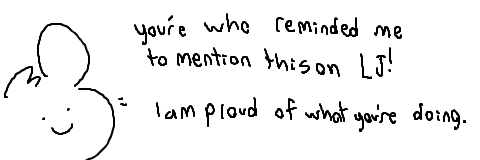 you're who reminded me
to mention this on LJ!
I am proud of what you're doing.